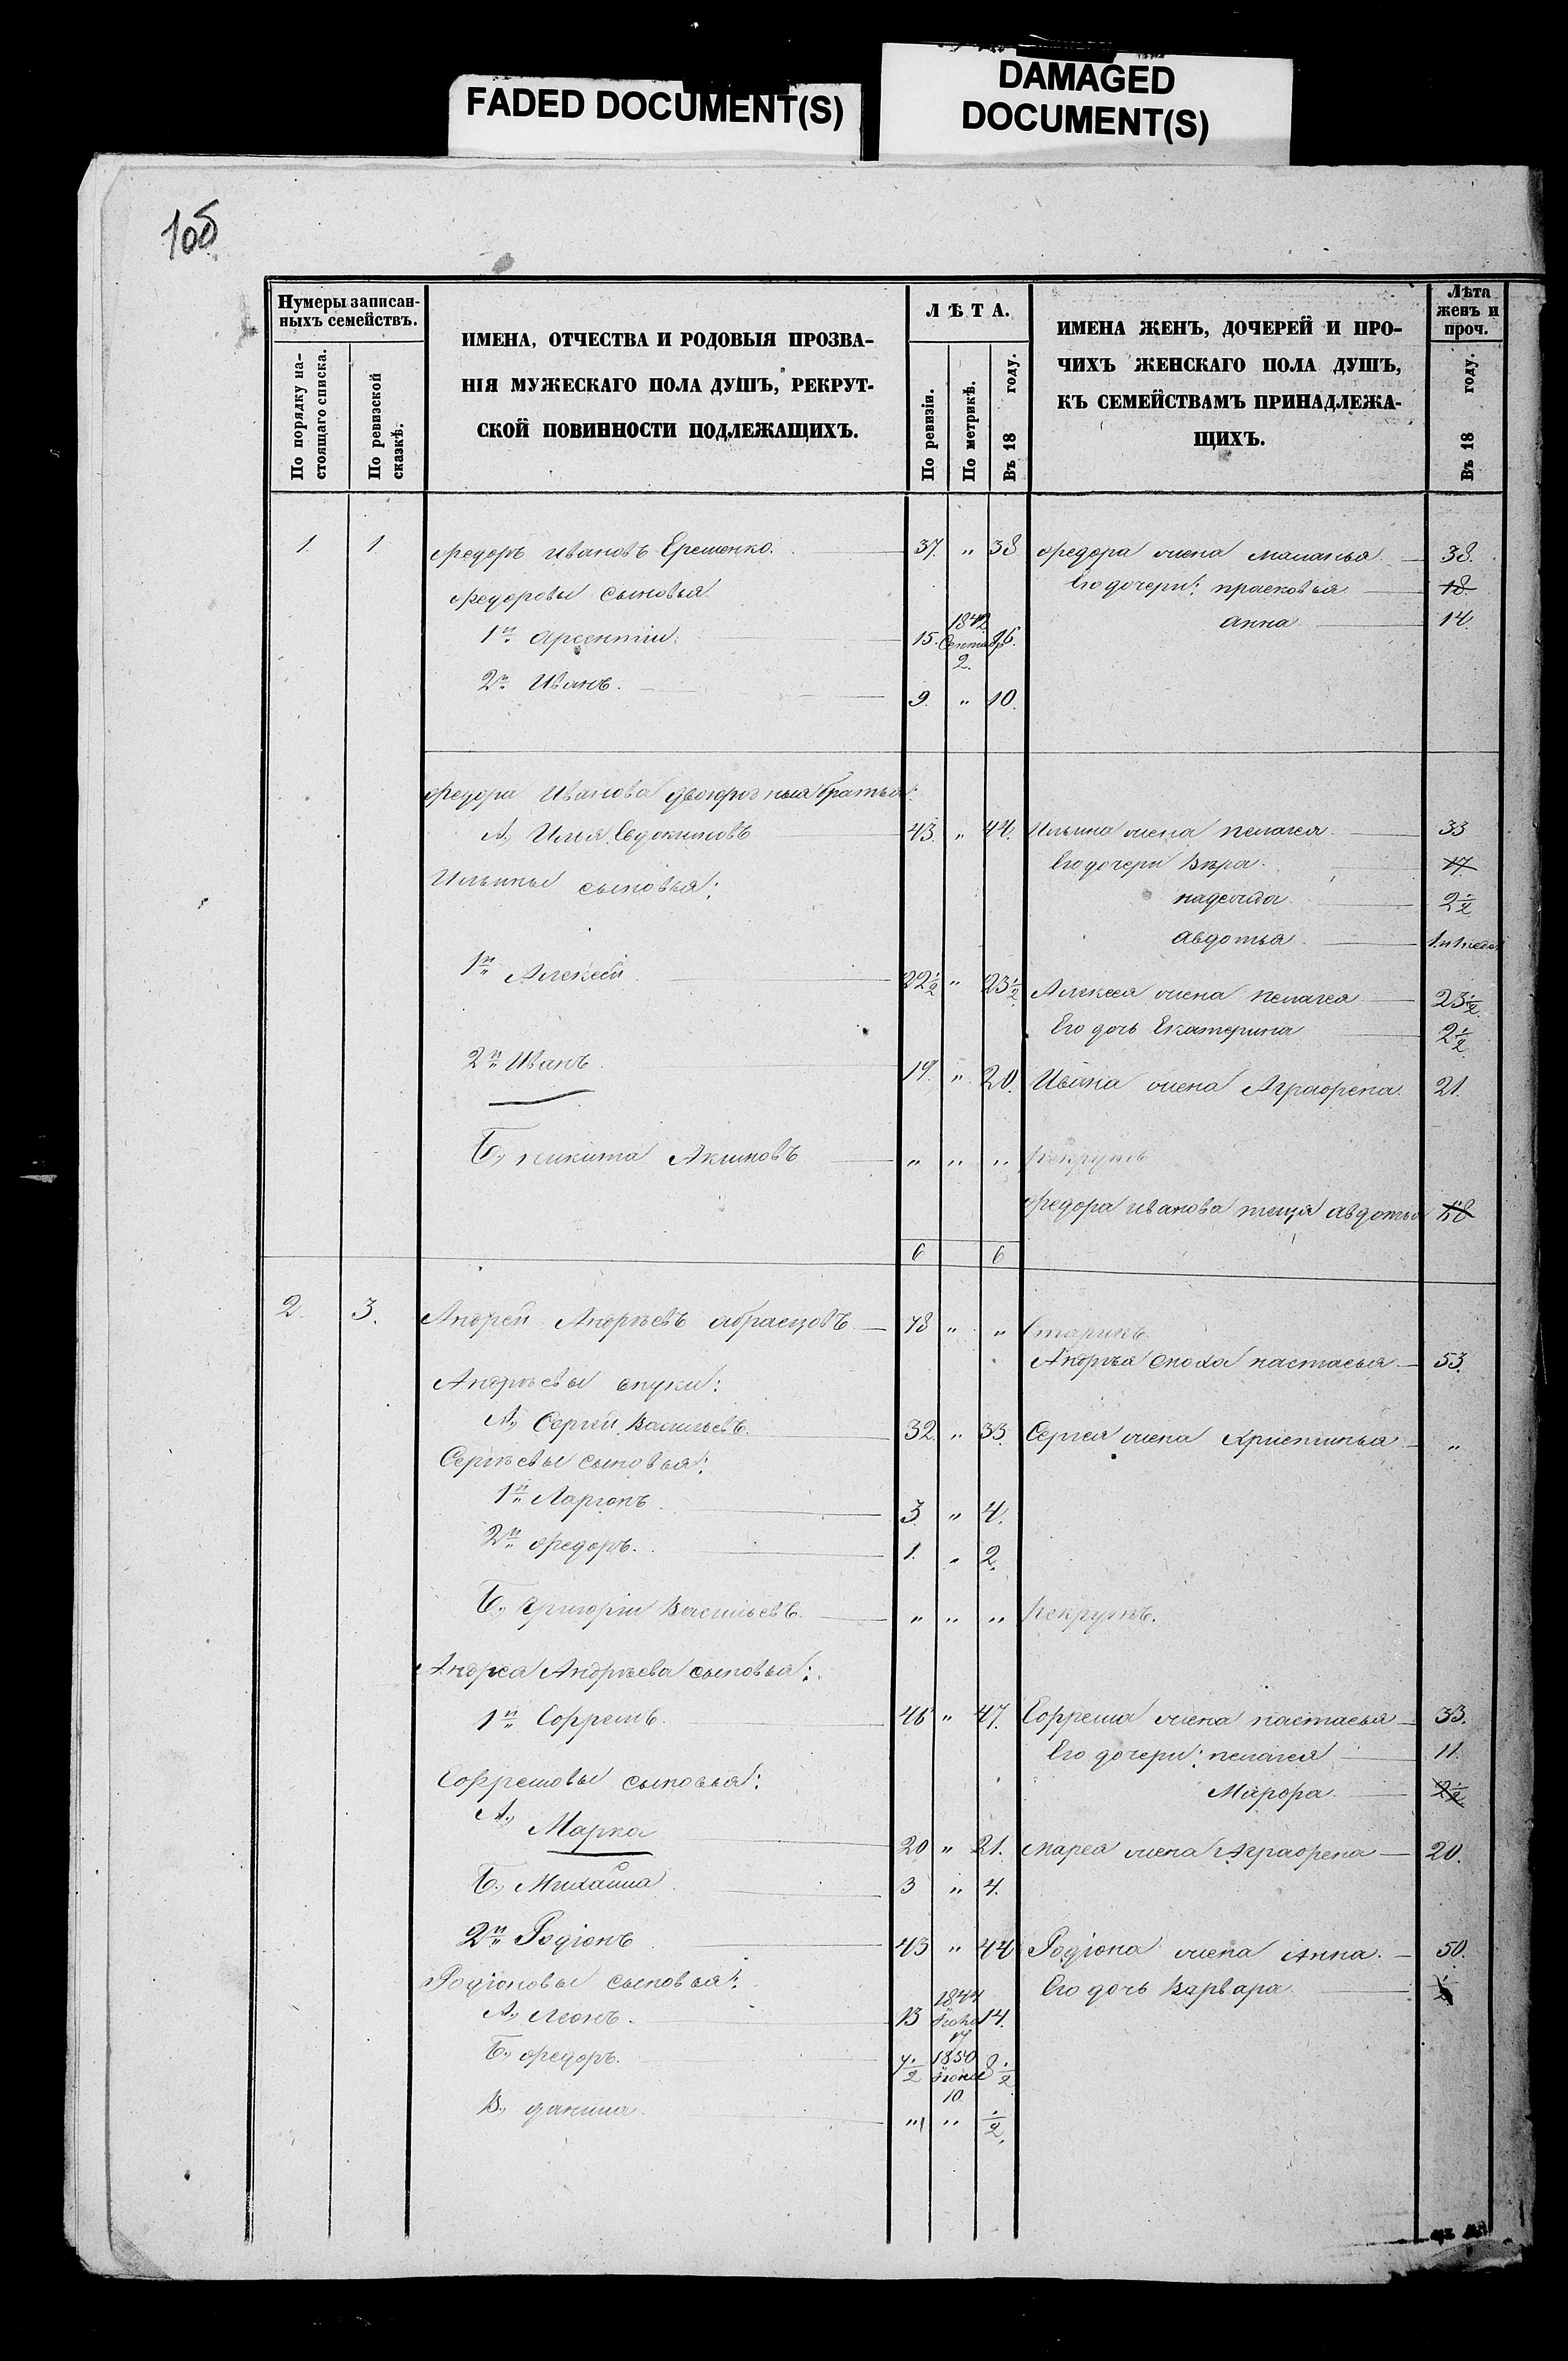 FADED DOCUMENT(S)
DAMAGED
DOCUMENT(S)
Нумеры записан-
ныхъ семействъ.
По порядку на-
стоящаго списка.
По ревизской
сказкѣ.
ИМЕНА, ОТЧЕСТВА И РОДОВЫЯ ПРОЗВА-
НІЯ МУЖЕСКАГО ПОЛА ДУШЪ, РЕКРУТ-
СКОЙ ПОВИННОСТИ ПОДЛЕЖАЩИХЪ.
ЛѢТА.
По ревизіи.
По метрикѣ.
Въ 18 году.
ИМЕНА ЖЕНЪ, ДОЧЕРЕЙ И ПРО-
ЧИХЪ ЖЕНСКАГО ПОЛА ДУШЪ,
КЪ СЕМЕЙСТВАМЪ ПРИНАДЛЕЖА-
ЩИХЪ.
Лѣта
женъ и
проч.
Въ 18 году.
1. 1 Федоръ Ивановъ Еременко. 37. " 38 Федора жена Маланья 38.
Федоровы сыновья Его дочери: Прасковья 18.
1й Арсентій. 15. 1842 Сентяб 2. 16. Анна 14.
2й Иванъ. 9. " 10.
Федора Иванова двоюродныя братья:
А., Илья Евдокимовъ 43. " 44. Ильина жена Пелагея 33
Ильины сыновья: Его дочери Вѣра. 17.
Надежда 2 1/2
Авдотья
1й Алексей 22 1/2 " 23 1/2 Алексея жена Пелагея 23 1/2.
Его дочь Екатерина 2 1/2
2й Иванъ. 19. " 20. Ивана жена Аграфена. 21.
Б., Никита Акимовъ " " " Рекрутъ
Федора Иванова теща Авдотья
6 6
2. 3. Андрей Андреевъ Абрасцовъ 78 " " Старикъ.
Андрея сноха Настасья 53.
Андреевы внуки:
А., Сергей Васильевъ. 32. " 33. Сергея жена Христинья "
Сергѣевы сыновья:
1й Ларіонъ. 3. " 4.
2й Федоръ. 1. " 2.
Б., Григорій Васильевъ. " " " Рекрутъ.
Андрея Андреева сыновья:
1й Софремъ. 46 " 47. Софрема жена Настасья 33.
Его дочери: Пелагея 11.
Софремовы сыновья: Марфа. 2 1/2
А., Марка 20 " 21. Марка жена Аграфена 20.
Б., Михаила 3 " 4.
2й Родіонъ 43 " 44 Родіона жена Анна. 50.
Родіоновы сыновья: Его дочь Варвара.
А., Леонъ. 13 1844 14.
Б., Федоръ. 7 1/2 1850 10 8 1/2
В., Данила. " " 1/2.